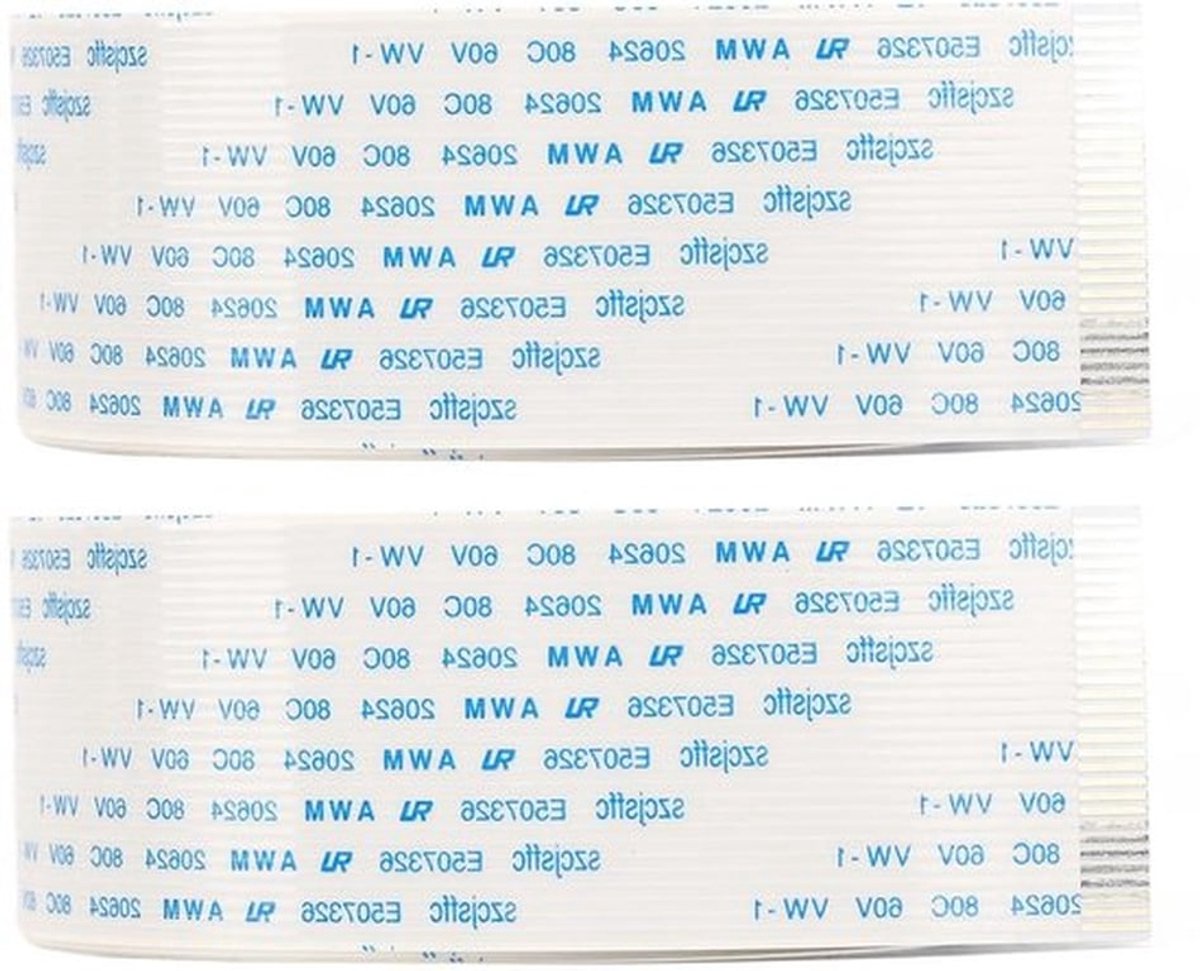 szcjsffc E507326 AWM 20624 80C 60V VW-1 szcjsffc E507326
szcjsffc E507326 AWM 20624 80C 60V VW-1 szcjsffc
szcjsffc E507326 AWM 20624 80C 60V VW-1
szcjsffc E507326 AWM 20624 80C 60V VW-1
VW-1 szcjsffc E507326 AWM 20624 80C 60V VW-1
60V VW-1 szcjsffc E507326 AWM 20624 80C 60V VW-1
80C 60V VW-1 szcjsffc E507326 AWM 20624 80C 60V
20624 80C 60V VW-1 szcjsffc E507326 AWM 20624 80C
szcjsffc E507326 AWM 20624 80C 60V VW-1 szcjsffc E507326
szcjsffc E507326 AWM 20624 80C 60V VW-1 szcjsffc
szcjsffc E507326 AWM 20624 80C 60V VW-1
szcjsffc E507326 AWM 20624 80C 60V VW-1
VW-1 szcjsffc E507326 AWM 20624 80C 60V VW-1
60V VW-1 szcjsffc E507326 AWM 20624 80C 60V VW-1
80C 60V VW-1 szcjsffc E507326 AWM 20624 80C 60V
20624 80C 60V VW-1 szcjsffc E507326 AWM 20624 80C